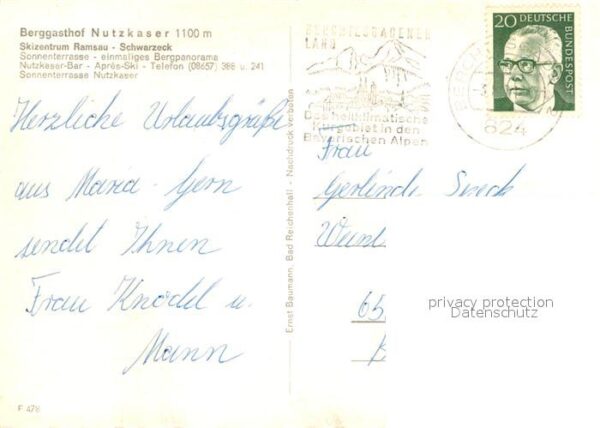 Berggasthof Nutzkaser 1100 m
Skizentrum Ramsau - Schwarzeck
Sonnenterrasse - einmaliges Bergpanorama
Nutzkaser-Bar - Après-Ski - Telefon (08657) 388 u. 241
Sonnenterrasse Nutzkaser
Herzliche Urlaubsgrüße
aus Maria-Gern
sendet Ihnen
Frau Knodel u.
Mann
F 478
Ernst Baumann, Bad Reichenhall - Nachdruck verboten
BERCHTESGADENER
LAND
Das heilklimatische
Kurgebiet in den
Bayerischen Alpen
824
20 DEUTSCHE
BUNDESPOST
Frau
Gerlinde
65
privacy protection
Datenschutz